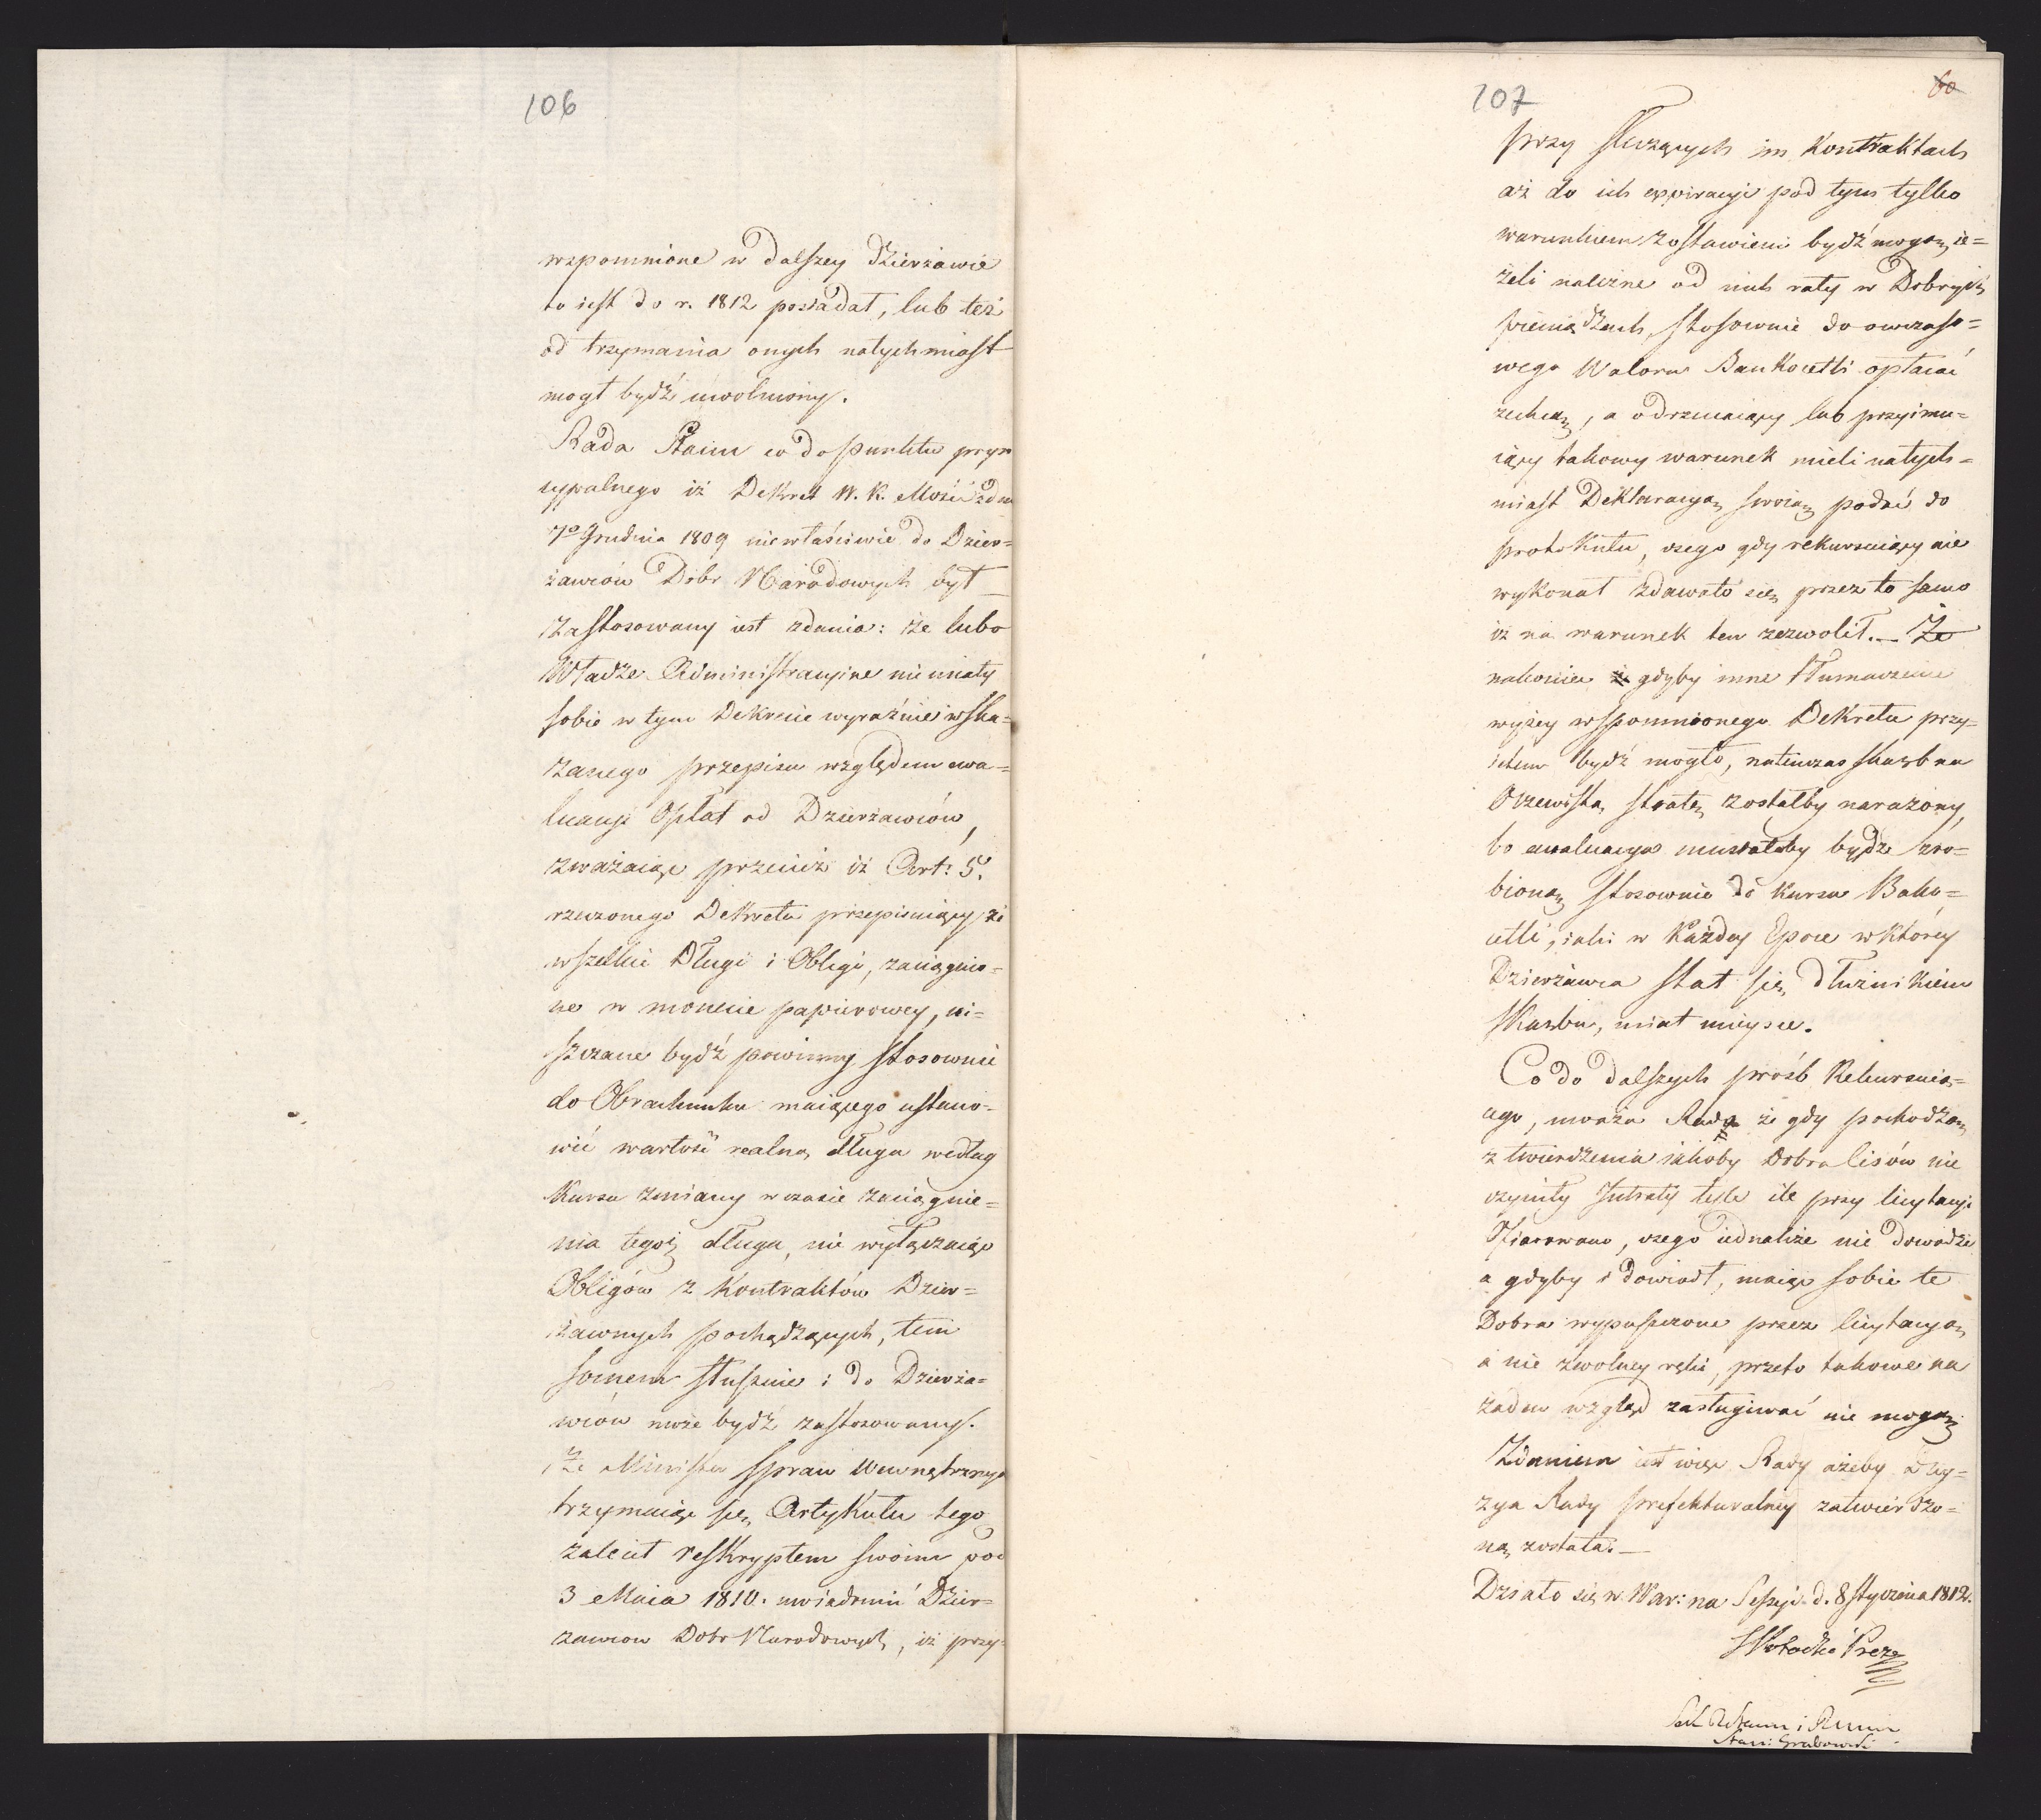 106
wspomnione w dalszey dzierzawie
to iest do r. 1812 posiadał, lub też
od trzymania onych natychmiast
mogł bydź uwolniony.
Rada Stanu co do punktu pryn
cypalnego iż Dekret W. K. Mości z dnia
7º Grudnia 1809 niewłaściwie do Dzier=
żawców Dóbr Narodowych był
zastosowany iest zdania: że lubo
Władze Administracyine nie miały
sobie w tym Dekrecie wyraźnie wska=
zanego przepisu względem ewa=
luacyi Opłat od Dzierżawców,
zważaiąc przecież iż Art: 5.
rzeczonego Dekretu przepisuiący że
wszelkie Długi i Obligi, zaciągnio=
ne w monecie papierowey, ui=
szczane bydź powinny stosownie
do Obrachunku maiącego ustano=
wić wartość realną długu według
Kursu zmiany w czasie zaciągnie=
nia tegoż długu, nie wyłączaiąc
Obligów z Kontraktów Dzier=
żawnych pochądzących, tem
samem słusznie i do Dzierża=
wców może bydź zastosowany.
Że Minister Spraw Wewnętrznych
trzymaiąc się Artykułu tego
zalecił reskryptem swoim pod
3 Maia 1810. uwiadomić Dzier=
zawcow Dobr Narodowych, iż przy=
107
60
przy służących im Kontraktach
aż do ich expiracyi pod tym tylko
warunkiem zostawieni bydź mogą, ie=
żeli należne od nich raty w Dobrych
pieniądzach, stosownie do owczaso=
wego Waloru Bankocetli opłacać
zechcą, a odrzucaiący lub przyimu=
iący takowy warunek mieli natych=
miast Deklaracyą swoią podać do
protokułu, czego gdy rekursuiący nie
wykonał zdawało się przez to samo
iż na warunek ten zezwolił. — Że
nakoniec gdyby inne tłumaczenie
wyżey wspomnionego Dekretu przy=
ietem bydź mogło, natenczas skarb na
Oczewistą stratę zostałby narażony,
bo ewaluacya musiałaby bydź zro=
bioną stosownie do kursu Banko=
cetli, iaki w każdey Epoce w którey
Dzierżawca stał się dłużnikiem
Skarbu, miał mieysce.
Co do dalszych prośb Rekursuią=
cego, uważa Rada że gdy pochodzą
z twierdzenia iakoby Dobra Lisów nie
czyniły Intraty tyle ile przy licytacyi
Ofiarowano, czego iednakże nie dowodzi
a gdyby i dowiodł, maiąc sobie te
Dobra wypuszczone przez licytacyą
a nie z wolney ręki, przeto takowe na
żaden wzgląd zasługiwać nie mogą.
Zdaniem iest więc Rady ażeby decy=
zya Rady prefekturalney zatwierdzo=
ną została. —
Działo się w War: na Sessyi d. 8 stycznia 1812.
S Potocki Prez
Stani: Grabowski